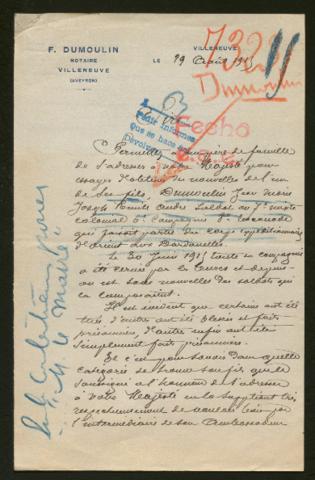 F. DUMOULIN
NOTAIRE
VILLENEUVE
(AVEYRON)
VILLENEUVE,
LE 29 Août 1915
732
Dumoulin
Pedir informes
Que se hace
Devolver
Fecho
Permettez à un père de famille
de s'adresser à votre Majesté pour
essayer d'obtenir des nouvelles de l'un
de ses fils, Dumoulin Jean Marie
Joseph Emile André soldat au
colonial 6e Compagnie 1re escouade
qui faisait partie du corps expéditionnaire
d'orient aux Dardanelles.
Le 30 Juin 1915 toute sa compagnie
a été cernée par les Turcs et depuis
on est sans nouvelles des soldats qui
la composaient.
Il est évident que certains ont été
tués, d'autres ont été blessés et faits
prisonniers, d'autres enfin ont été
simplement faits prisonniers.
Et c'est pour savoir dans quelle
catégorie se trouve son fils que le
soussigné a l'honneur de s'adresser
à Votre Majesté en la suppliant très
respectueusement de vouloir bien par
l'intermédiaire de son Ambassadeur